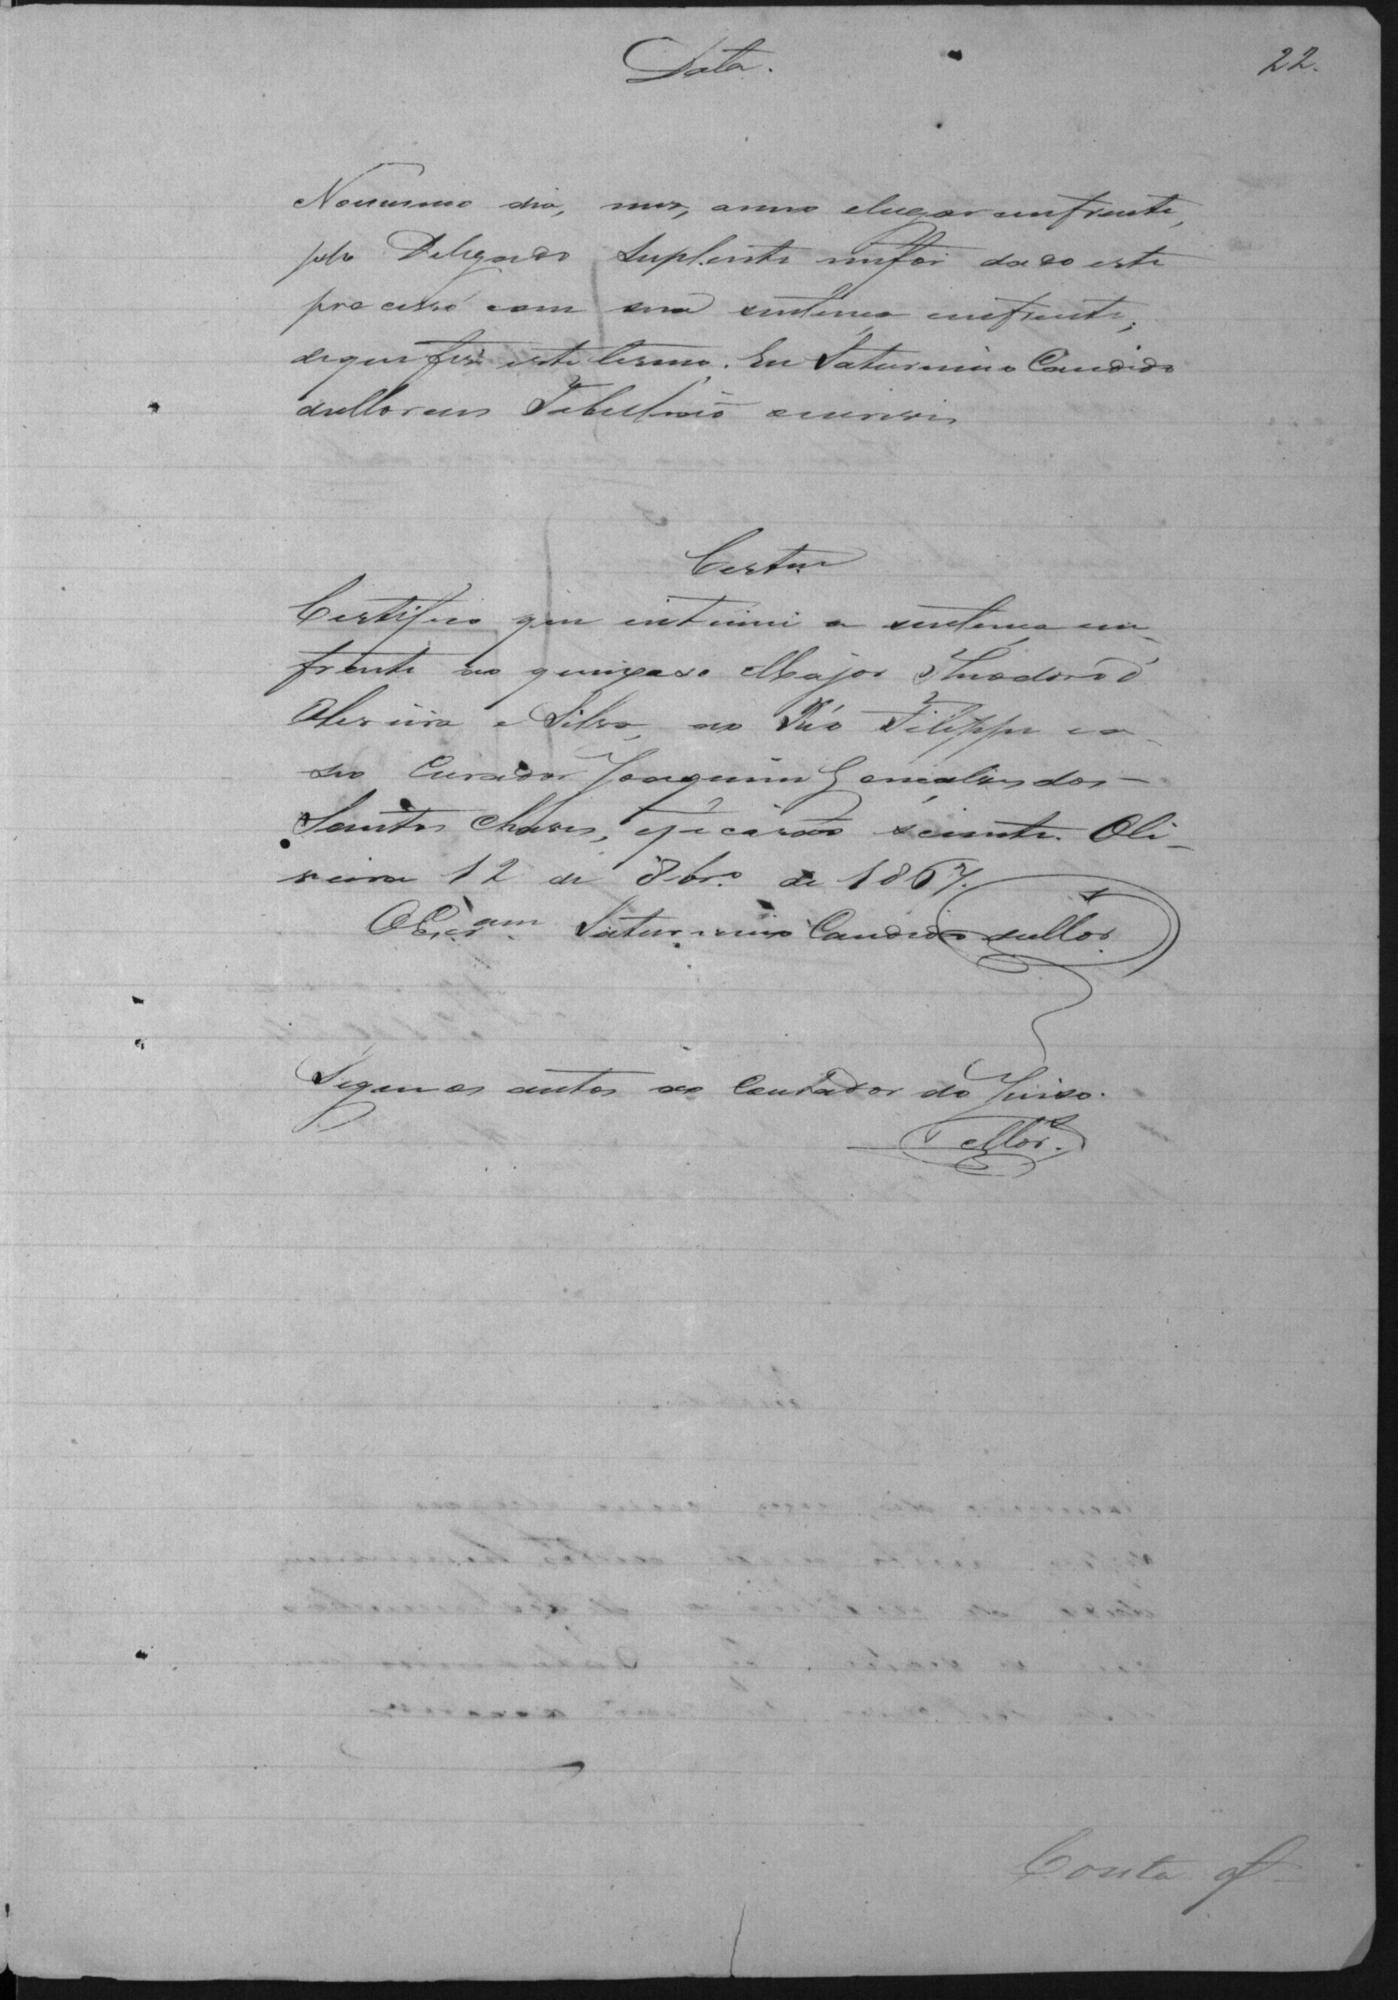 Data.
22.
Nomesmo dia, mes, anno elugar emfrente,
pelo Delegado Suplente mefoi dado este
processo com sua sentença emfrente;
dequefis este termo. Eu Saturnino Candido
Tabelião escrivi
Certm
Certifico que intimei a sentença em-
frente ao queixoso Major Theodoro d'
Oliveira e Silva, ao Réo Filippe ea
seo Curador Joaquim Gonçalves dos-
Santos Chaves, eficarão sciente. Oli-
veira 12 de 8br.o de 1867.
OEscram Saturnino Candido
Segue os autos ao Contador do Juiso.
Conta f